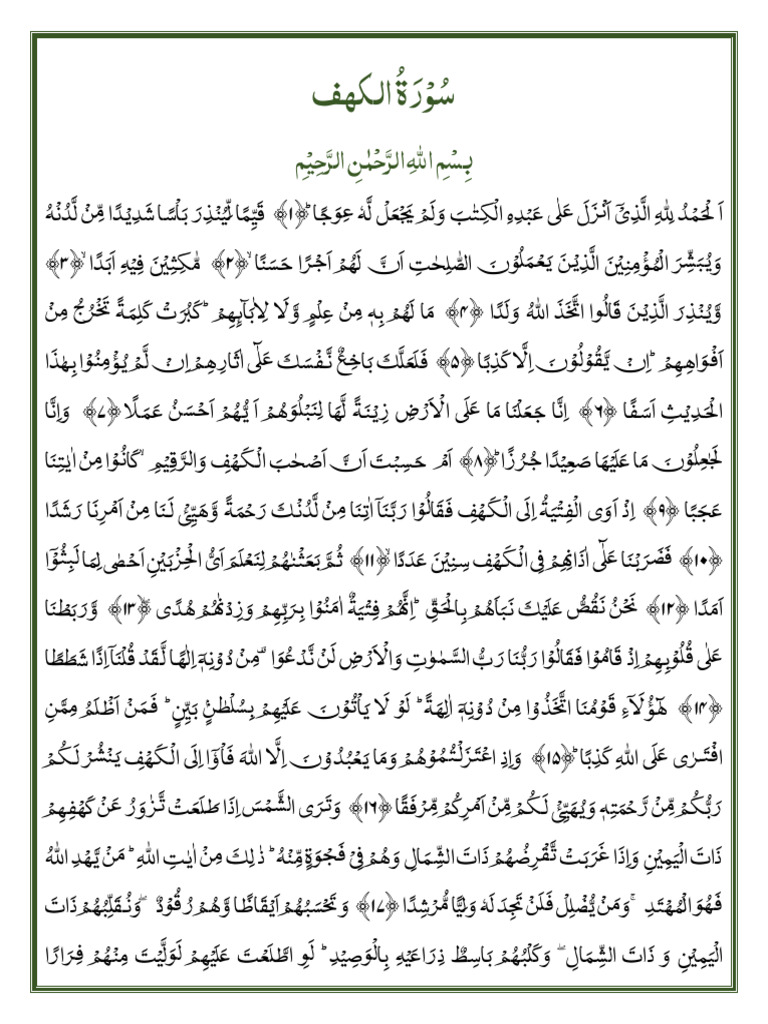 سُوۡرَةُ الۡكَهۡف
بِسۡمِ اللّٰهِ الرَّحۡمٰنِ الرَّحِيۡمِ
اَلۡحَمۡدُ لِلّٰهِ الَّذِىۡۤ اَنۡزَلَ عَلٰى عَبۡدِهِ الۡكِتٰبَ وَلَمۡ يَجۡعَلْ لَّهٗ عِوَجًا ؕ‏ ﴿۱﴾ قَيِّمًا لِّيُنۡذِرَ بَاۡسًا شَدِيۡدًا مِّنۡ لَّدُنۡهُ
وَيُبَشِّرَ الۡمُؤۡمِنِيۡنَ الَّذِيۡنَ يَعۡمَلُوۡنَ الصّٰلِحٰتِ اَنَّ لَهُمۡ اَجۡرًا حَسَنًا ۙ‏ ﴿۲﴾ مّٰكِثِيۡنَ فِيۡهِ اَبَدًا ۙ‏ ﴿۳﴾
وَّيُنۡذِرَ الَّذِيۡنَ قَالُوا اتَّخَذَ اللّٰهُ وَلَدًا ﴿۴﴾ مَا لَهُمۡ بِهٖ مِنۡ عِلۡمٍ وَّلَا لِاٰبَآٮِٕهِمۡ‌ؕ كَبُرَتۡ كَلِمَةً تَخۡرُجُ مِنۡ
اَفۡوَاهِهِمۡ‌ؕ اِنۡ يَّقُوۡلُوۡنَ اِلَّا كَذِبًا ﴿۵﴾ فَلَعَلَّكَ بَاخِعٌ نَّـفۡسَكَ عَلٰٓى اٰثَارِهِمۡ اِنۡ لَّمۡ يُؤۡمِنُوۡا بِهٰذَا
الۡحَـدِيۡثِ اَسَفًا ﴿۶﴾ اِنَّا جَعَلۡنَا مَا عَلَى الۡاَرۡضِ زِيۡنَةً لَّهَا لِنَبۡلُوَهُمۡ اَ يُّهُمۡ اَحۡسَنُ عَمَلًا ﴿۷﴾ وَاِنَّا
لَجٰعِلُوۡنَ مَا عَلَيۡهَا صَعِيۡدًا جُرُزًا ؕ‏ ﴿۸﴾ اَمۡ حَسِبۡتَ اَنَّ اَصۡحٰبَ الۡـكَهۡفِ وَالرَّقِيۡمِۙ كَانُوۡا مِنۡ اٰيٰتِنَا
عَجَبًا ﴿۹﴾ اِذۡ اَوَى الۡفِتۡيَةُ اِلَى الۡـكَهۡفِ فَقَالُوۡا رَبَّنَاۤ اٰتِنَا مِنۡ لَّدُنۡكَ رَحۡمَةً وَّهَيِّئۡ لَنَا مِنۡ اَمۡرِنَا رَشَدًا
﴿۱۰﴾ فَضَرَبۡنَا عَلٰٓى اٰذَانِهِمۡ فِى الۡـكَهۡفِ سِنِيۡنَ عَدَدًا ۙ‏ ﴿۱۱﴾ ثُمَّ بَعَثۡنٰهُمۡ لِنَعۡلَمَ اَىُّ الۡحِزۡبَيۡنِ اَحۡصٰى لِمَا لَبِثُوۡۤا
اَمَدًا ﴿۱۲﴾ نَحۡنُ نَقُصُّ عَلَيۡكَ نَبَاَهُمۡ بِالۡحَـقِّ‌ؕ اِنَّهُمۡ فِتۡيَةٌ اٰمَنُوۡا بِرَبِّهِمۡ وَزِدۡنٰهُمۡ هُدًى‌ۖ‏ ﴿۱۳﴾ وَّرَبَطۡنَا
عَلٰى قُلُوۡبِهِمۡ اِذۡ قَامُوۡا فَقَالُوۡا رَبُّنَا رَبُّ السَّمٰوٰتِ وَالۡاَرۡضِ لَنۡ نَّدۡعُوَا۟ مِنۡ دُوۡنِهٖۤ اِلٰهًـا لَّـقَدۡ قُلۡنَاۤ اِذًا شَطَطًا
﴿۱۴﴾ هٰٓؤُلَاۤءِ قَوۡمُنَا اتَّخَذُوۡا مِنۡ دُوۡنِهٖۤ اٰلِهَةً‌ ؕ لَوۡ لَا يَاۡتُوۡنَ عَلَيۡهِمۡ بِسُلۡطٰنٍۢ بَيِّنٍ‌ ؕ فَمَنۡ اَظۡلَمُ مِمَّنِ
افۡتَـرٰى عَلَى اللّٰهِ كَذِبًا ؕ‏ ﴿۱۵﴾ وَاِذِ اعۡتَزَلۡـتُمُوۡهُمۡ وَمَا يَعۡبُدُوۡنَ اِلَّا اللّٰهَ فَاۡوٗۤا اِلَى الۡـكَهۡفِ يَنۡشُرۡ لَـكُمۡ
رَبُّكُمۡ مِّنۡ رَّحۡمَتِهٖ وَيُهَيِّئۡ لَـكُمۡ مِّنۡ اَمۡرِكُمۡ مِّرۡفَقًا ﴿۱۶﴾ وَتَرَى الشَّمۡسَ اِذَا طَلَعَتۡ تَّزٰوَرُ عَنۡ كَهۡفِهِمۡ
ذَاتَ الۡيَمِيۡنِ وَاِذَا غَرَبَتۡ تَّقۡرِضُهُمۡ ذَاتَ الشِّمَالِ وَهُمۡ فِىۡ فَجۡوَةٍ مِّنۡهُ‌ ؕ ذٰ لِكَ مِنۡ اٰيٰتِ اللّٰهِ‌ ؕ مَنۡ يَّهۡدِ اللّٰهُ
فَهُوَ الۡمُهۡتَدِ ‌ۚ وَمَنۡ يُّضۡلِلۡ فَلَنۡ تَجِدَ لَهٗ وَلِيًّا مُّرۡشِدًا ﴿۱۷﴾ وَ تَحۡسَبُهُمۡ اَيۡقَاظًا وَّهُمۡ رُقُوۡدٌ ‌ۖ وَّنُـقَلِّبُهُمۡ ذَاتَ
الۡيَمِيۡنِ وَ ذَاتَ الشِّمَالِ‌ ‌ۖ وَكَلۡبُهُمۡ بَاسِطٌ ذِرَاعَيۡهِ بِالۡوَصِيۡدِ‌ ؕ لَوِ اطَّلَعۡتَ عَلَيۡهِمۡ لَوَلَّيۡتَ مِنۡهُمۡ فِرَارًا